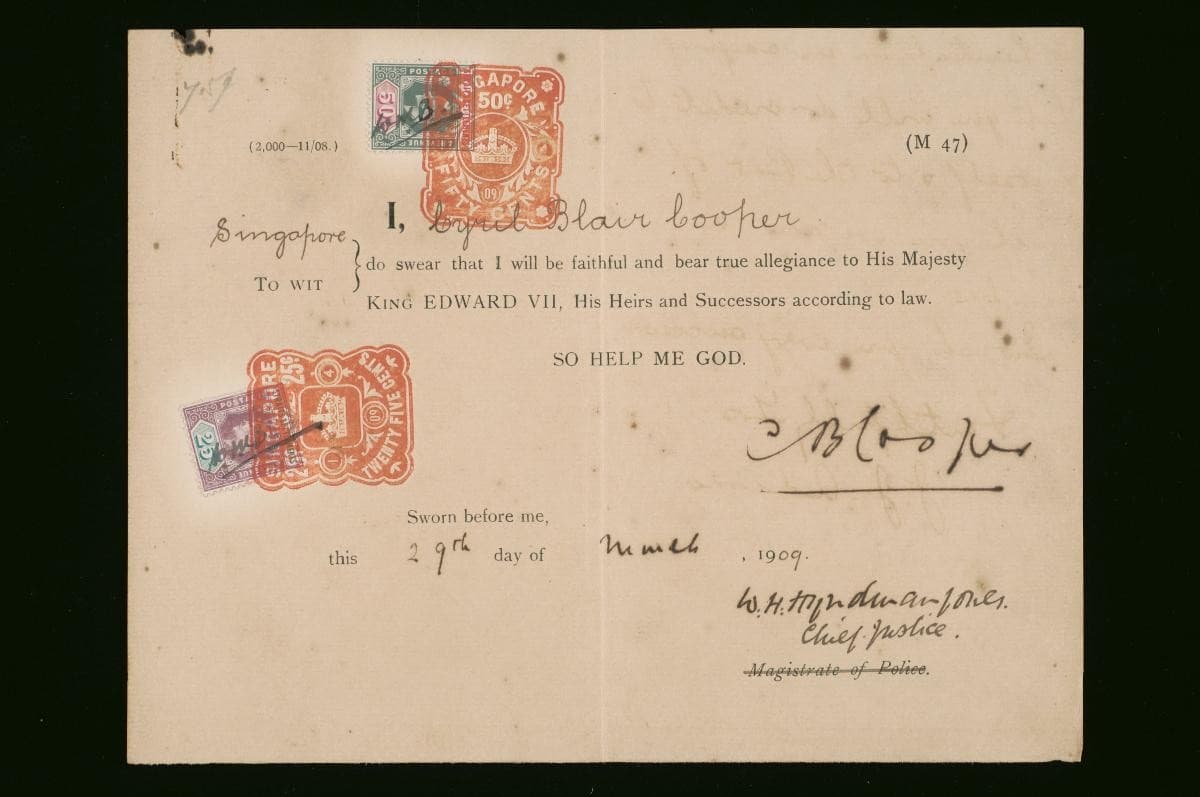 7.59
(2,000—11/08.)
(M 47)
POSTAGE
REVENUE
50
SINGAPORE
50c
FIFTY CENTS
09
I, Cyril Blair Cooper
Singapore
TO WIT
do swear that I will be faithful and bear true allegiance to His Majesty
KING EDWARD VII, His Heirs and Successors according to law.
SO HELP ME GOD.
POSTAGE
REVENUE
25
SINGAPORE
25c
TWENTY FIVE CENTS
4
09
1
C B Cooper
Sworn before me,
this 29th day of March, 1909.
W. H. Hyndman Jones.
Chief Justice.
Magistrate of Police.